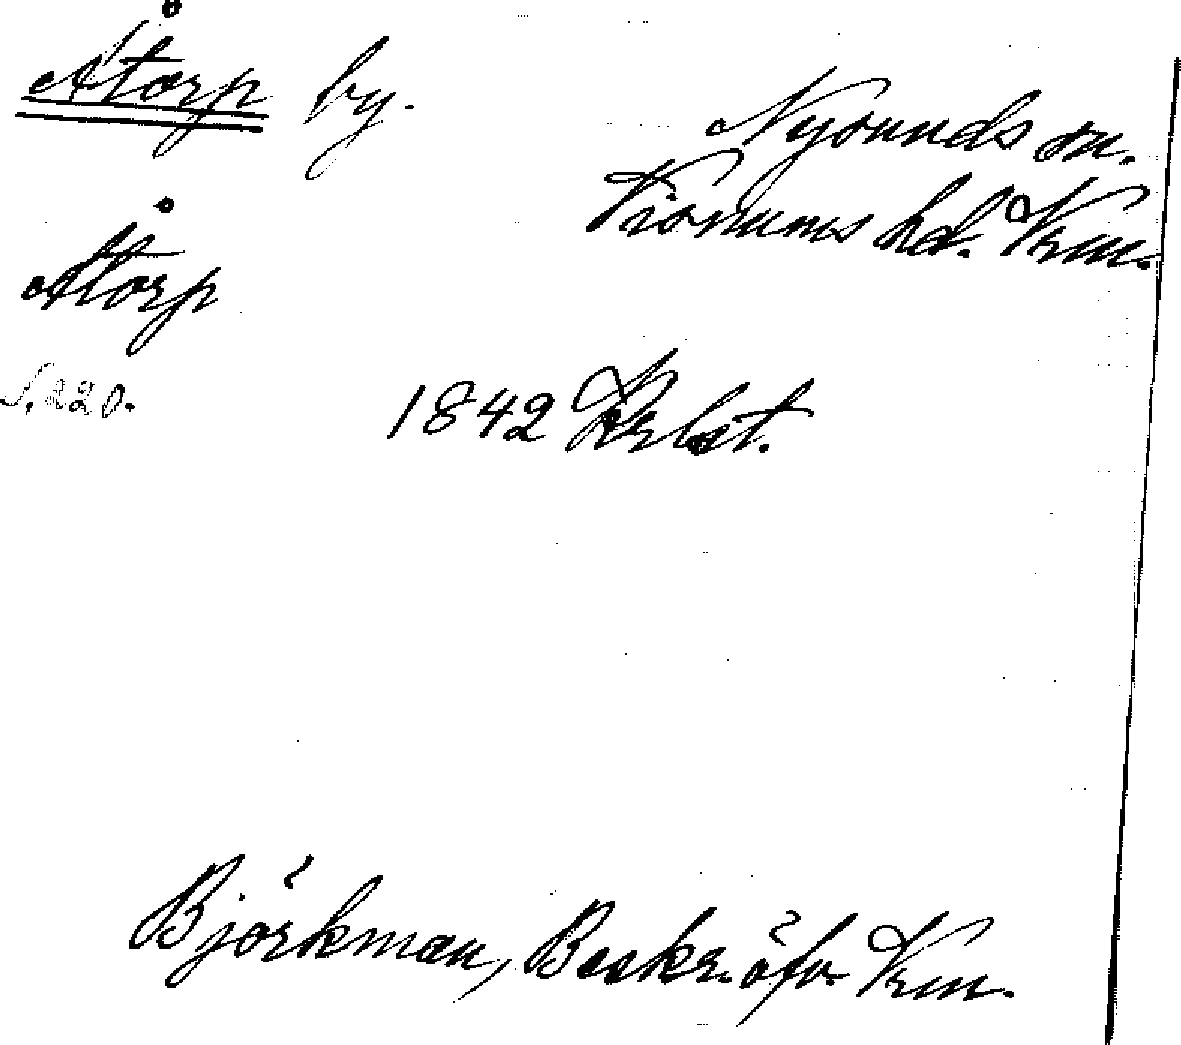 Åtorp by.
Nysunds sn.
Visnums hd. Vrm.
Åtorp
S. 220.
1842 Hrbst.
Björkman, Beskr. öfv. Vrm.